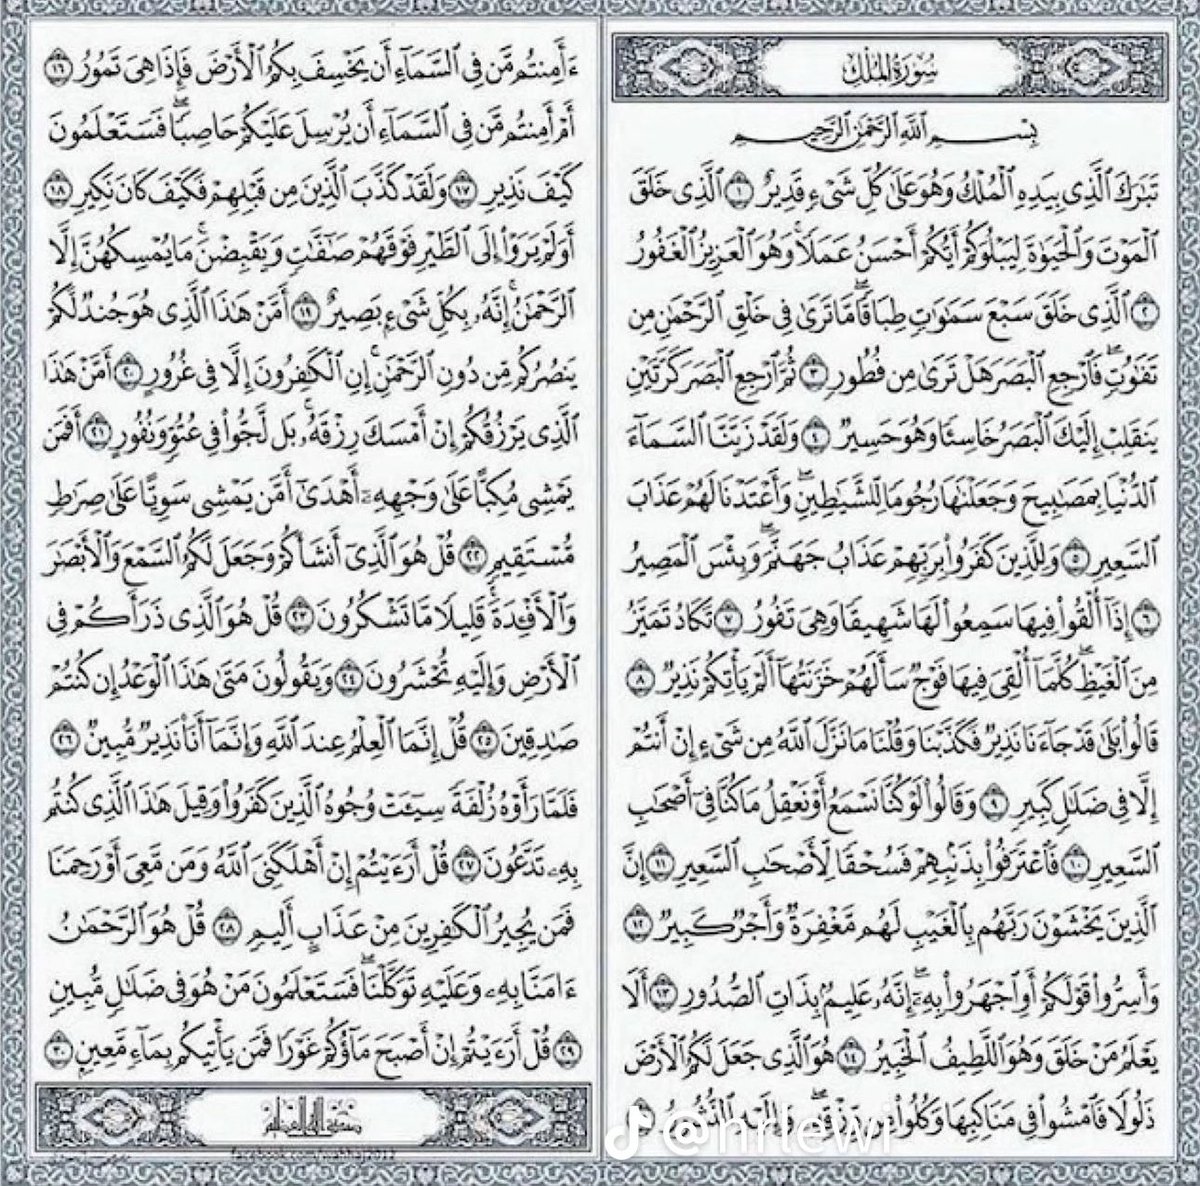 سُورَةُ المُلْكِ
بِسْمِ اللَّهِ الرَّحْمَٰنِ الرَّحِيمِ
تَبَارَكَ الَّذِي بِيَدِهِ الْمُلْكُ وَهُوَ عَلَىٰ كُلِّ شَيْءٍ قَدِيرٌ ١ الَّذِي خَلَقَ
الْمَوْتَ وَالْحَيَاةَ لِيَبْلُوَكُمْ أَيُّكُمْ أَحْسَنُ عَمَلًا وَهُوَ الْعَزِيزُ الْغَفُورُ
٢ الَّذِي خَلَقَ سَبْعَ سَمَاوَاتٍ طِبَاقًا مَّا تَرَىٰ فِي خَلْقِ الرَّحْمَٰنِ مِن
تَفَاوُتٍ فَارْجِعِ الْبَصَرَ هَلْ تَرَىٰ مِن فُطُورٍ ٣ ثُمَّ ارْجِعِ الْبَصَرَ كَرَّتَيْنِ
يَنقَلِبْ إِلَيْكَ الْبَصَرُ خَاسِئًا وَهُوَ حَسِيرٌ ٤ وَلَقَدْ زَيَّنَّا السَّمَاءَ
الدُّنْيَا بِمَصَابِيحَ وَجَعَلْنَاهَا رُجُومًا لِّلشَّيَاطِينِ وَأَعْتَدْنَا لَهُمْ عَذَابَ
السَّعِيرِ ٥ وَلِلَّذِينَ كَفَرُوا بِرَبِّهِمْ عَذَابُ جَهَنَّمَ وَبِئْسَ الْمَصِيرُ
٦ إِذَا أُلْقُوا فِيهَا سَمِعُوا لَهَا شَهِيقًا وَهِيَ تَفُورُ ٧ تَكَادُ تَمَيَّزُ
مِنَ الْغَيْظِ كُلَّمَا أُلْقِيَ فِيهَا فَوْجٌ سَأَلَهُمْ خَزَنَتُهَا أَلَمْ يَأْتِكُمْ نَذِيرٌ ٨
قَالُوا بَلَىٰ قَدْ جَاءَنَا نَذِيرٌ فَكَذَّبْنَا وَقُلْنَا مَا نَزَّلَ اللَّهُ مِن شَيْءٍ إِنْ أَنتُمْ
إِلَّا فِي ضَلَالٍ كَبِيرٍ ٩ وَقَالُوا لَوْ كُنَّا نَسْمَعُ أَوْ نَعْقِلُ مَا كُنَّا فِي أَصْحَابِ
السَّعِيرِ ١٠ فَاعْتَرَفُوا بِذَنبِهِمْ فَسُحْقًا لِّأَصْحَابِ السَّعِيرِ ١١ إِنَّ
الَّذِينَ يَخْشَوْنَ رَبَّهُم بِالْغَيْبِ لَهُم مَّغْفِرَةٌ وَأَجْرٌ كَبِيرٌ ١٢
وَأَسِرُّوا قَوْلَكُمْ أَوِ اجْهَرُوا بِهِ إِنَّهُ عَلِيمٌ بِذَاتِ الصُّدُورِ ١٣ أَلَا
يَعْلَمُ مَنْ خَلَقَ وَهُوَ اللَّطِيفُ الْخَبِيرُ ١٤ هُوَ الَّذِي جَعَلَ لَكُمُ الْأَرْضَ
ذَلُولًا فَامْشُوا فِي مَنَاكِبِهَا وَكُلُوا مِن رِّزْقِهِ وَإِلَيْهِ النُّشُورُ ١٥
ءَأَمِنتُم مَّن فِي السَّمَاءِ أَن يَخْسِفَ بِكُمُ الْأَرْضَ فَإِذَا هِيَ تَمُورُ ١٦
أَمْ أَمِنتُم مَّن فِي السَّمَاءِ أَن يُرْسِلَ عَلَيْكُمْ حَاصِبًا فَسَتَعْلَمُونَ
كَيْفَ نَذِيرِ ١٧ وَلَقَدْ كَذَّبَ الَّذِينَ مِن قَبْلِهِمْ فَكَيْفَ كَانَ نَكِيرِ ١٨
أَوَلَمْ يَرَوْا إِلَى الطَّيْرِ فَوْقَهُمْ صَافَّاتٍ وَيَقْبِضْنَ مَا يُمْسِكُهُنَّ إِلَّا
الرَّحْمَٰنُ إِنَّهُ بِكُلِّ شَيْءٍ بَصِيرٌ ١٩ أَمَّنْ هَٰذَا الَّذِي هُوَ جُندٌ لَّكُمْ
يَنصُرُكُم مِّن دُونِ الرَّحْمَٰنِ إِنِ الْكَافِرُونَ إِلَّا فِي غُرُورٍ ٢٠ أَمَّنْ هَٰذَا
الَّذِي يَرْزُقُكُمْ إِنْ أَمْسَكَ رِزْقَهُ بَل لَّجُّوا فِي عُتُوٍّ وَنُفُورٍ ٢١ أَفَمَن
يَمْشِي مُكِبًّا عَلَىٰ وَجْهِهِ أَهْدَىٰ أَمَّن يَمْشِي سَوِيًّا عَلَىٰ صِرَاطٍ
مُّسْتَقِيمٍ ٢٢ قُلْ هُوَ الَّذِي أَنشَأَكُمْ وَجَعَلَ لَكُمُ السَّمْعَ وَالْأَبْصَارَ
وَالْأَفْئِدَةَ قَلِيلًا مَّا تَشْكُرُونَ ٢٣ قُلْ هُوَ الَّذِي ذَرَأَكُمْ فِي
الْأَرْضِ وَإِلَيْهِ تُحْشَرُونَ ٢٤ وَيَقُولُونَ مَتَىٰ هَٰذَا الْوَعْدُ إِن كُنتُمْ
صَادِقِينَ ٢٥ قُلْ إِنَّمَا الْعِلْمُ عِندَ اللَّهِ وَإِنَّمَا أَنَا نَذِيرٌ مُّبِينٌ ٢٦
فَلَمَّا رَأَوْهُ زُلْفَةً سِيئَتْ وُجُوهُ الَّذِينَ كَفَرُوا وَقِيلَ هَٰذَا الَّذِي كُنتُم
بِهِ تَدَّعُونَ ٢٧ قُلْ أَرَءَيْتُمْ إِنْ أَهْلَكَنِيَ اللَّهُ وَمَن مَّعِيَ أَوْ رَحِمَنَا
فَمَن يُجِيرُ الْكَافِرِينَ مِنْ عَذَابٍ أَلِيمٍ ٢٨ قُلْ هُوَ الرَّحْمَٰنُ
ءَامَنَّا بِهِ وَعَلَيْهِ تَوَكَّلْنَا فَسَتَعْلَمُونَ مَنْ هُوَ فِي ضَلَالٍ مُّبِينٍ
٢٩ قُلْ أَرَءَيْتُمْ إِنْ أَصْبَحَ مَاؤُكُمْ غَوْرًا فَمَن يَأْتِيكُم بِمَاءٍ مَّعِينٍ ٣٠
صدق الله العظيم
@nrlewi